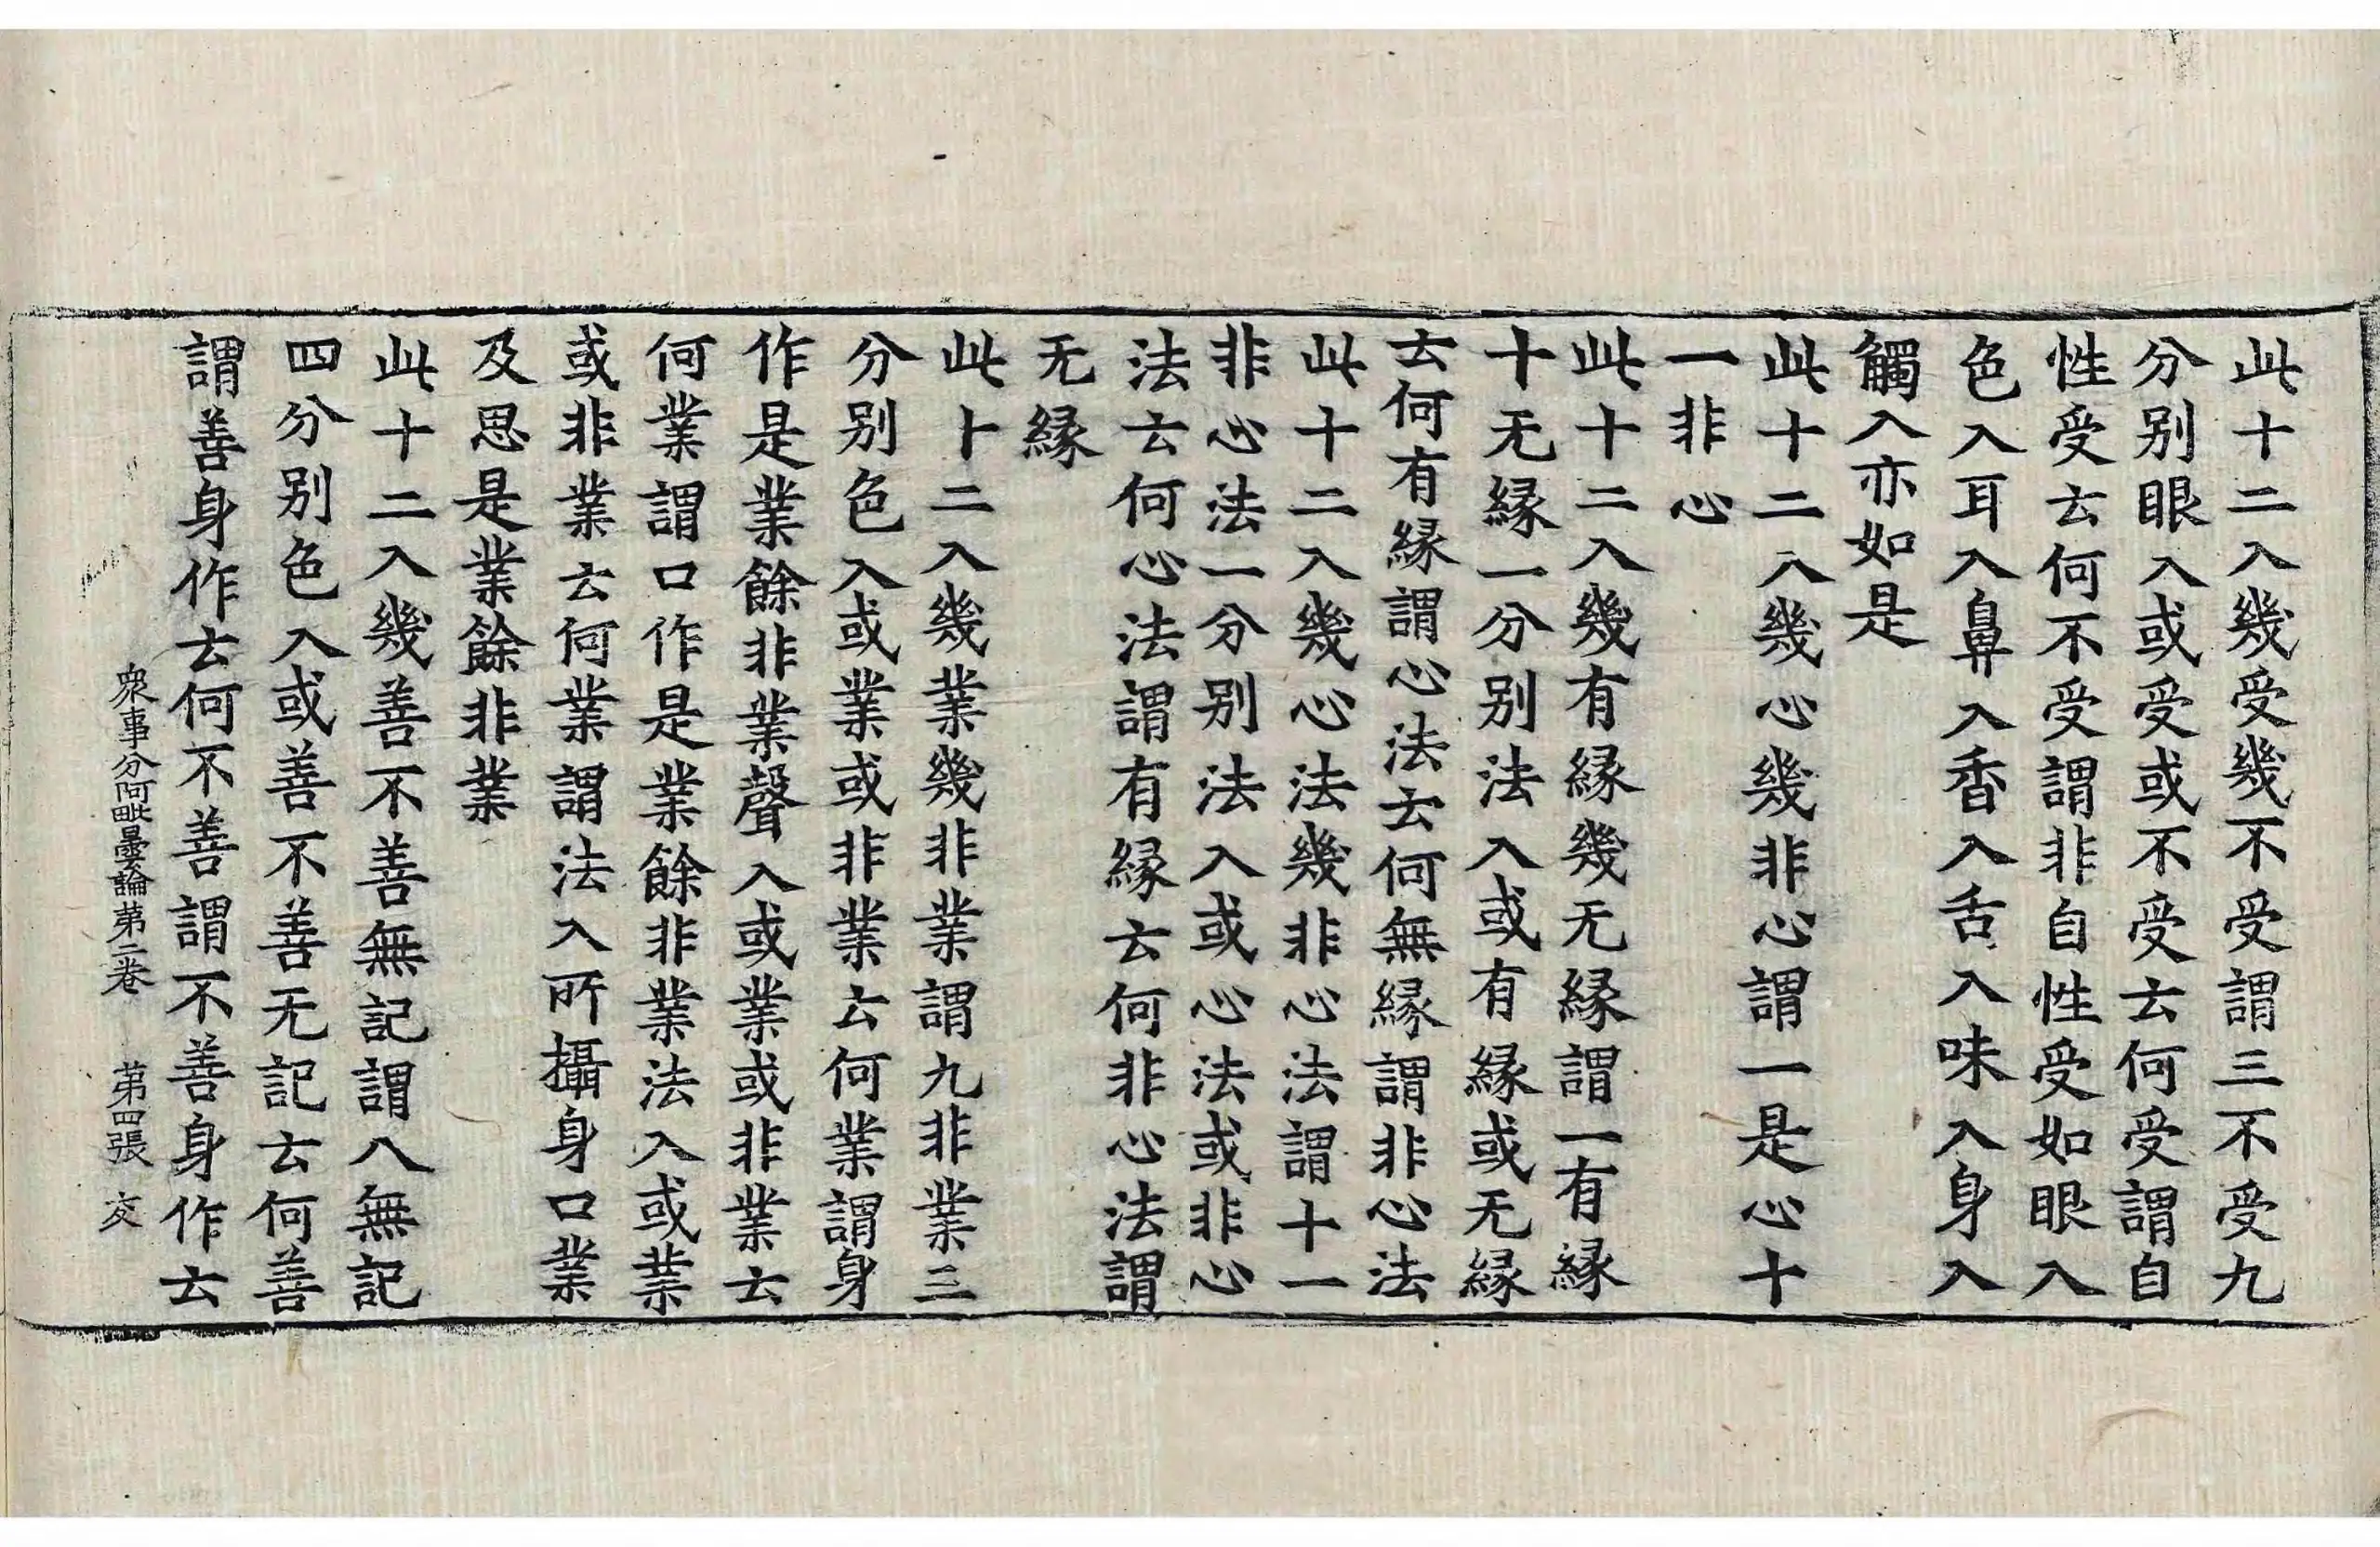 此十二入幾受幾不受謂三不受九
分別眼入或受或不受云何受謂自
性受云何不受謂非自性受如眼入
色入耳入鼻入香入舌入味入身入
觸入亦如是
此十二入幾心幾非心謂一是心十
一非心
此十二入幾有縁幾无縁謂一有縁
十无縁一分別法入或有縁或无縁
云何有縁謂心法云何無縁謂非心法
此十二入幾心法幾非心法謂十一
非心法一分別法入或心法或非心
法云何心法謂有縁云何非心法謂
无縁
此十二入幾業幾非業謂九非業三
分別色入或業或非業云何業謂身
作是業餘非業聲入或業或非業云
何業謂口作是業餘非業法入或業
或非業云何業謂法入所攝身口業
及思是業餘非業
此十二入幾善不善無記謂八無記
四分別色入或善不善无記云何善
謂善身作云何不善謂不善身作云
衆事分阿毗曇論第二卷 第四張 交